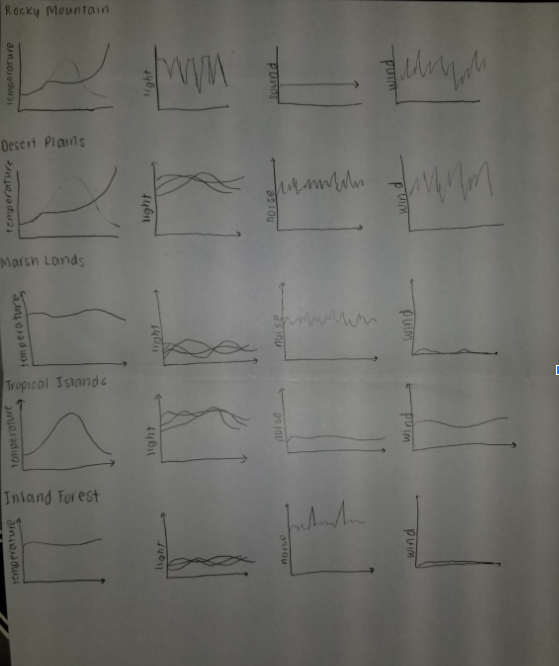 Rocky Mountain
temperature light sound wind
Desert Plains
temperature light noise wind
Marsh Lands
temperature light noise wind
Tropical Islands
temperature light noise wind
Inland Forest
temperature light noise wind